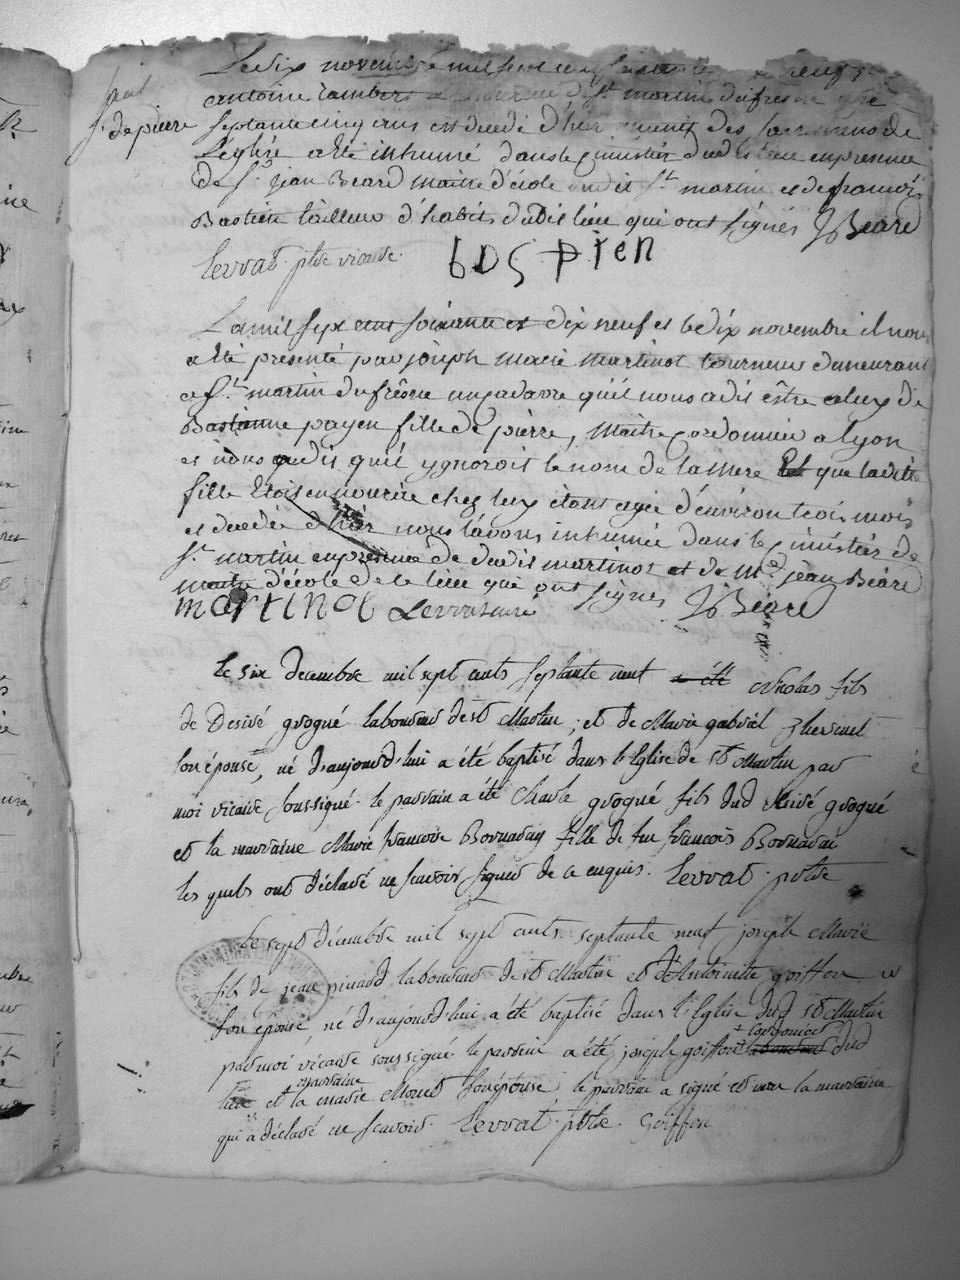 Le dix novembre mil sept cent
antoine lambert St martin du fresne agé
St de pierre
septante cinq ans est decedé d'hier munit des sacremens de
L'église a été inhumé dans le cimistier dudit lieu en presence
de Sr jean Beard maitre d'école dudit St martin et de francois
Bastien tailleur d'habits dudit lieu qui ont signés JBeard
levrat ptre vicaire bastien
L'an mil sept cent soixante et dix neuf et le dix novembre il nous
a été presenté par joseph marie martinot tourneur demeurant
a St martin du frêsne un cadavre qu'il nous a dit être celuy de
Bastianne payen fille de pierre, maitre cordonnier a lyon
et nous a dit qu'il ygnoroit le nom de la mere et que ladite
fille étoit en nourrice chez lux étant agée d'environ trois mois
et decedée d'hier nous l'avons inhumée dans le cimistier de
St martin en presence de dudit martinot et de Mre jean Béard
maitre d'école de ce lieu qui ont signes JBéard
martinot Levrat vicaire
le six decembre mil sept cents septante neuf a été Nicolas fils
de Desiré grogué laboureur de st Martin, et de Marie gabriel
son épouse, né d'aujourd'hui a été baptisé dans l'Eglise de st Martin par
moi vicaire soussigné. le parrain a été Charle grogué fils dud desiré grogué
et la marraine Marie francoise fille de feu francois
les quels ont déclaré ne scavoir signer de ce enquis. levrat ptre
le sept décembre mil sept cents septante neuf joseph Marie
fils de jean pinard laboureur de st Martin et d'Antoinette goiffon
son épouse, né d'aujourd'hui a été baptisé dans l'Eglise dud st Martin
par moi vicaire soussigné le parrein a été joseph goiffon laboureur dud
lieu et la marraine marie son épouse, le parrain a signé et non la marraine
qui a déclaré ne scavoir. levrat ptre. Goiffon